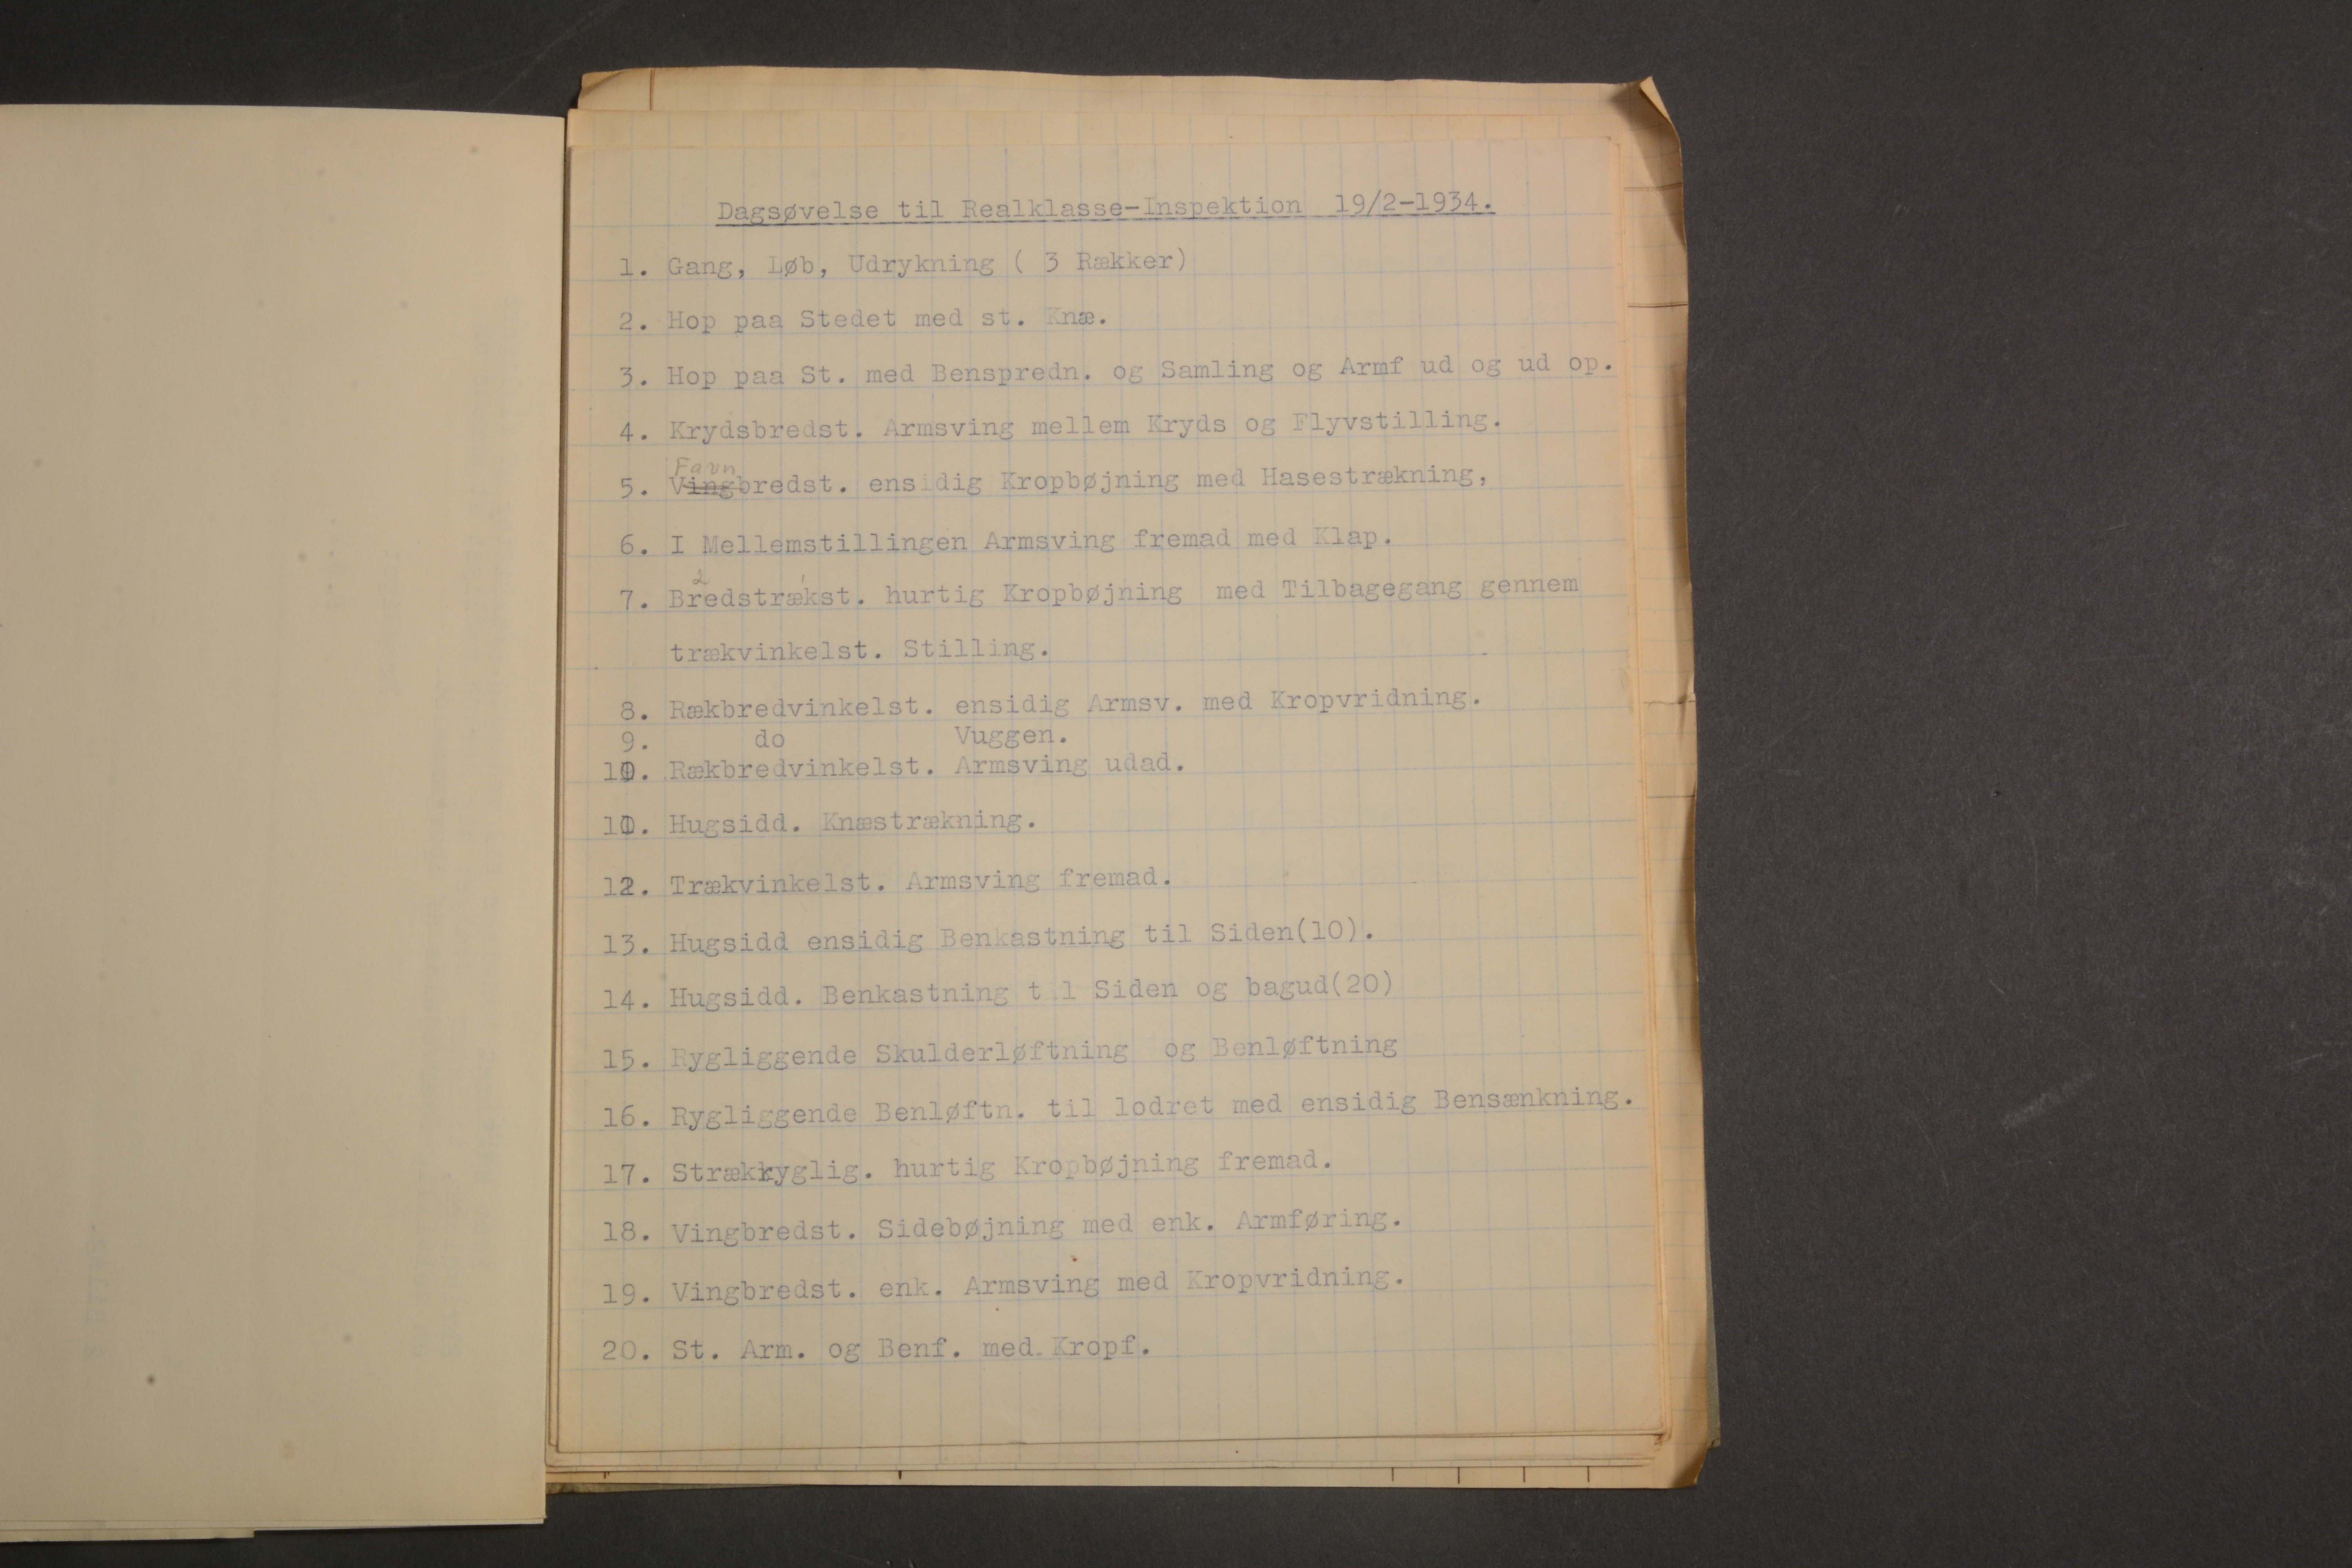 Dagsøvelse til Realklasse-Inspektion 19/2-1934.
1. Gang, Løb, Udrykning ( 3 Rækker)
2. Hop paa Stedet med st. Knæ.
3. Hop paa St. med Benspredn. og Samling og Armf ud og ud op.
4. Krydsbredst. Armsving mellem Kryds og Flyvstilling.
Favn
5. Vingbredst. ensidig Kropbøjning med Hasestrækning,
6. I Mellemstillingen Armsving fremad med Klap.
2 1
7. Bredstrækst. hurtig Kropbøjning med Tilbagegang gennem
trækvinkelst. Stilling.
8. Rækbredvinkelst. ensidig Armsv. med Kropvridning.
9. do Vuggen.
10. Rækbredvinkelst. Armsving udad.
11. Hugsidd. Knæstrækning.
12. Trækvinkelst. Armsving fremad.
13. Hugsidd ensidig Benkastning til Siden(10).
14. Hugsidd. Benkastning t l Siden og bagud(20)
15. Rygliggende Skulderløftning og Benløftning
16. Rygliggende Benløftn. til lodret med ensidig Bensænkning.
17. Strækryglig. hurtig Kropbøjning fremad.
18. Vingbredst. Sidebøjning med enk. Armføring.
19. Vingbredst. enk. Armsving med Kropvridning.
20. St. Arm. og Benf. med Kropf.